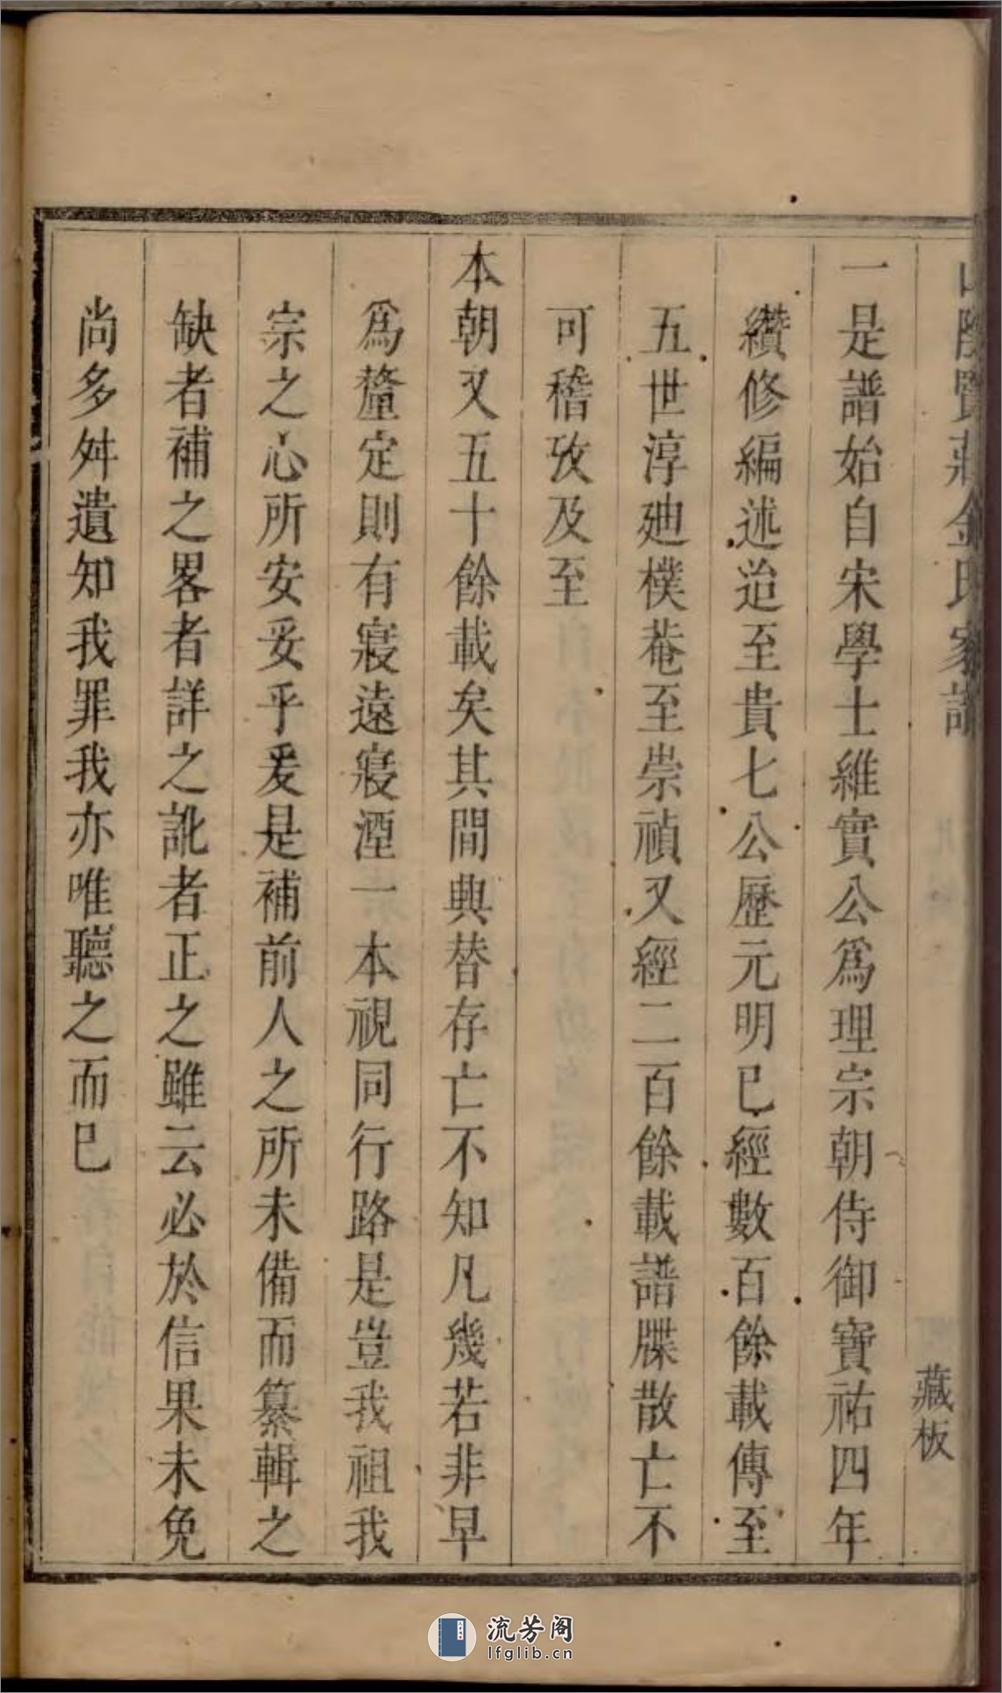 山陰賢莊金氏家譜
藏板
一是譜始自宋學士維實公爲理宗朝侍御寶祐四年
纘修編述迨至貴七公歷元明已經數百餘載傳至
五世淳廸樸菴至崇禎又經二百餘載譜牒散亡不
可稽攷及至
本朝又五十餘載矣其間興替存亡不知凡幾若非早
爲釐定則有寢遠寢湮一本視同行路是豈我祖我
宗之心所安妥乎爰是補前人之所未備而纂輯之
缺者補之畧者詳之訛者正之雖云必於信果未免
尚多舛遺知我罪我亦唯聽之而已
流芳阁
lfglib.cn